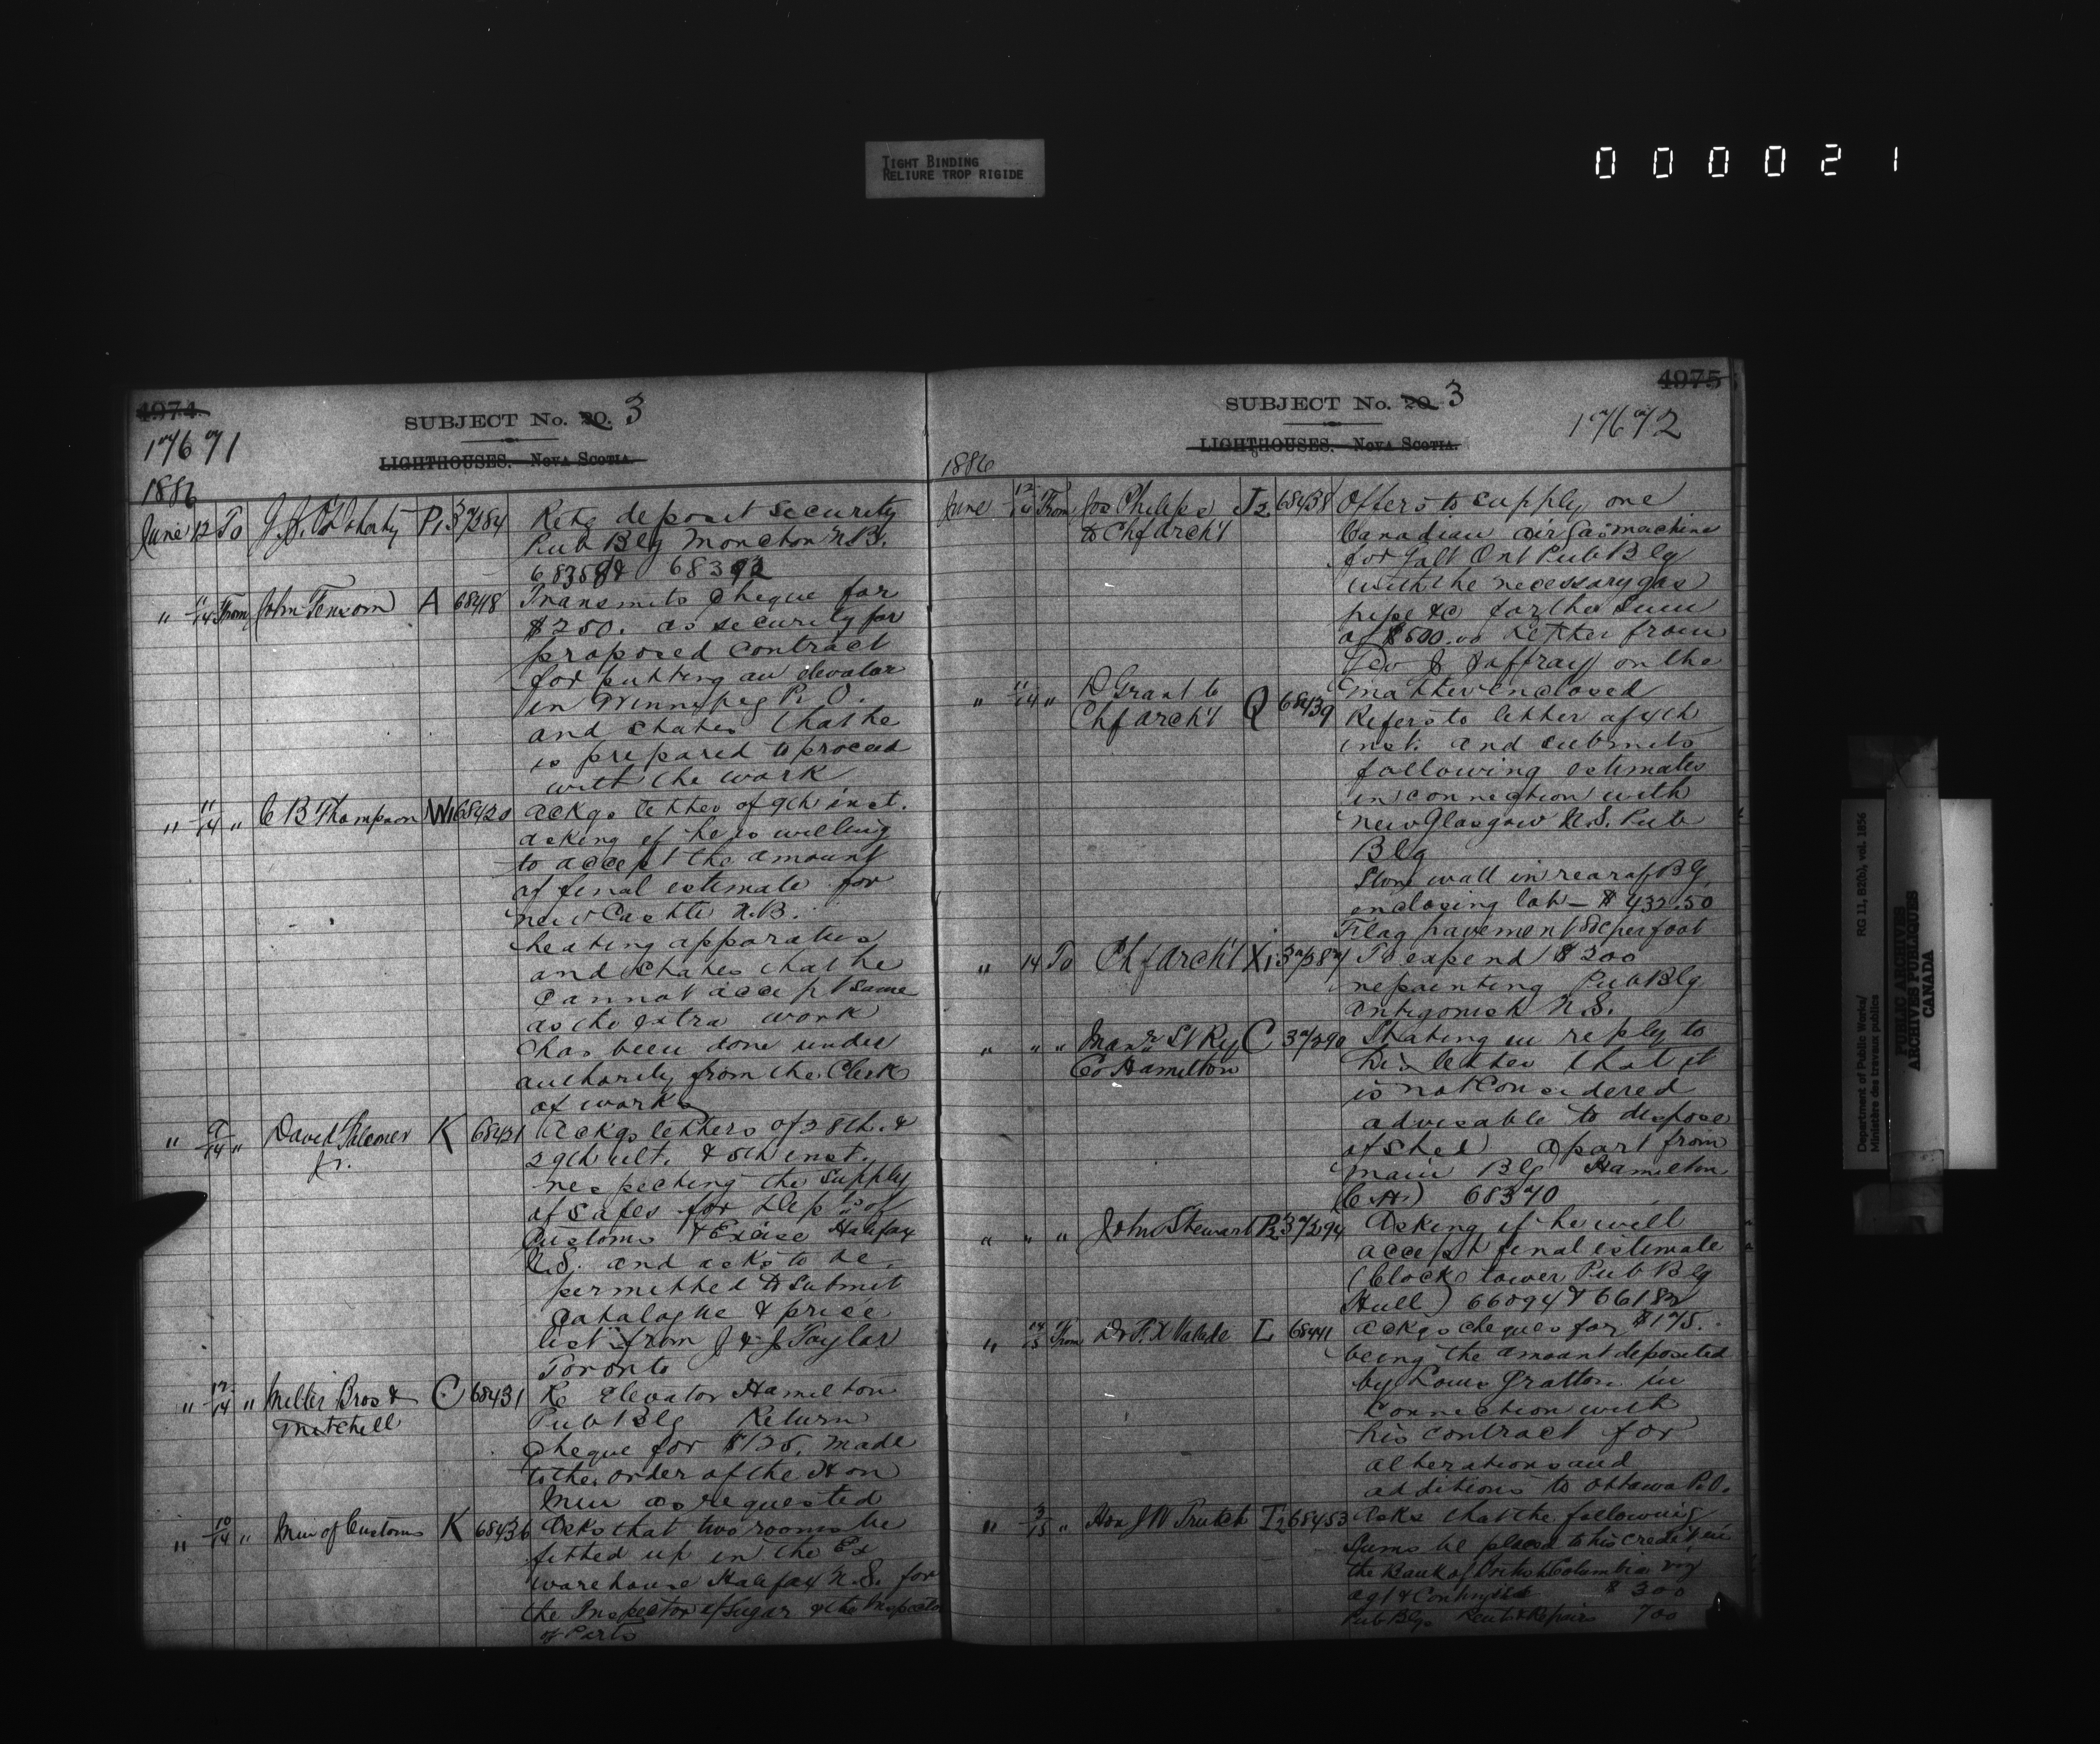 TIGHT BINDING
RELIURE TROP RIGIDE
000021
4974
SUBJECT No. 20. 3
17671
LIGHTHOUSES. NOVA SCOTIA.
1886
June 12 To J. J. O'Doherty P1 37284 Retg deposit security
Pub Blg Moncton N.B.
68358 & 68392
" 11/14 From John Fensom A 68418 Transmits cheque for
$250. as security for
proposed contract
for putting an elevator
in Winnipeg P. O.
and states that he
is prepared to proceed
with the work
" 11/14 " C B Thompson W1 68420 Ackgs letter of 9th inst.
asking if he is willing
to accept the amount
of final estimate for
New Castle N.B.
heating apparatus
and states that he
cannot accept same
as the extra work
has been done under
authority from the Clerk
of works
" 9/14 " David K 68421 Ackgs letters of 28th &
Jr. 29th ult. & 5th inst.
respecting the supply
of safes for Depts of
Customs & Excise Halifax
N.S. and asks to be
permitted to submit
Catalogue & price
list from J & J Taylor
Toronto
" 12/14 " Miller Bros & C 68431 Re Elevator Hamilton
Mitchell Pub Blg Return
cheque for $125. made
to the order of the Hon
Min as requested
" 10/14 " Min of Customs K 68436 Asks that two rooms be
fitted up in the Ex
warehouse Halifax N.S. for
the Inspector of Sugar & the Inspector
of Ports
4975
SUBJECT No. 20. 3
17672
LIGHTHOUSES. NOVA SCOTIA.
1886
June 12/14 From Jos Philips J2 68438 Offers to supply one
to Chf Arch't Canadian air gas machine
for Galt Ont Pub Blg
with the necessary gas
pipe &c for the sum
of $500.00 Letter from
& Jaffray on the
matter enclosed
" 11/14 " D Grant to Q 68439 Refers to letter of 4th
Chf Arch't inst. and submits
following estimates
in connection with
New Glasgow N.S. Pub
Blg
Stone wall in rear of Blg
enclosing lot — $432.50
Flag pavement 80c per foot
" 14 To Chf Arch't X1 37287 To expend $200
repainting Pub Blg
Antigonish N.S.
" " " Manr St Ry C 37290 Stating in reply to
Co Hamilton his letter that it
is not considered
advisable to dispose
of shed apart from
main Blg Hamilton
(C.H.) 68370
" " " John Stewart P2 37294 Asking if he will
accept final estimate
(Clock tower Pub Blg
Hull) 66094 & 66182
" 14/15 From Dr F. X Valade L 68441 Ackgs cheques for $175.
being the amount deposited
by Louis Gratton in
connection with
his contract for
alterations and
additions to Ottawa P.O.
" 3/15 " Hon J W Trutch T2 68453 Asks that the following
sums be placed to his credit in
the Bank of British Columbia viz
Agt & Contingencies $ 300
Pub Blgs Rent & Repairs 700
Department of Public Works/
Ministère des travaux publics
RG 11, B2(b), vol. 1856
PUBLIC ARCHIVES
ARCHIVES PUBLIQUES
CANADA